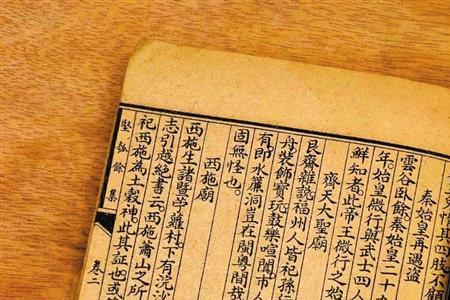 其四肢不
秦始皇再遇盗
雲谷卧餘秦始皇二十
年始皇微行與武士四人
鮮知者此帝王微行之始
齊天大聖廟
艮齋雜說福州人皆祀孫
舟裝飾寶玩鼓樂喧闐市人
有即水簾洞豈在閩粤間哉
固無怪也。
西施廟
西施生諸暨苧蘿村下有浣沙
志引越絕書云西施蕭山之所
祀西施為土穀神。此其証也或
堅瓠餘集 卷二